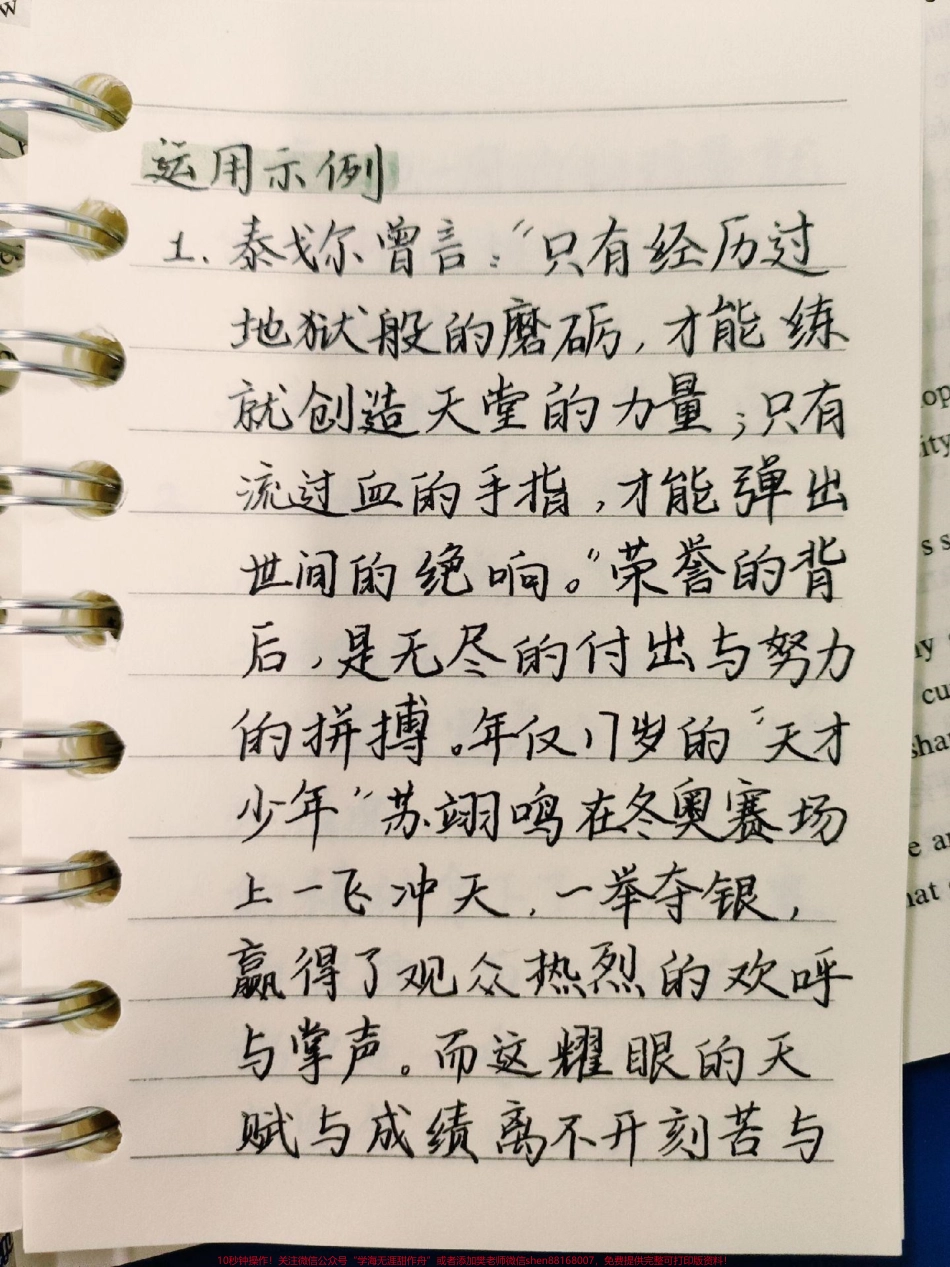 运用示例
1. 泰戈尔曾言："只有经历过
地狱般的磨砺，才能练
就创造天堂的力量；只有
流过血的手指，才能弹出
世间的绝响。"荣誉的背
后，是无尽的付出与努力
的拼搏。年仅17岁的"天才
少年"苏翊鸣在冬奥赛场
上一飞冲天，一举夺银，
赢得了观众热烈的欢呼
与掌声。而这耀眼的天
赋与成绩离不开刻苦与
10秒钟操作！关注微信公众号"学海无涯甜作舟"或者添加吴老师微信shen88168007，免费提供完整可打印版资料！